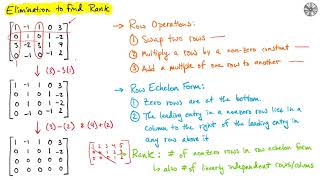 Elimination to find Rank
1 -1 1 0 3
0 1 0 1 -2
3 -2 3 1 7
0 -1 0 -1 2
(3)-3(1)
1 -1 1 0 3
0 1 0 1 -2
0 1 0 1 -2
0 -1 0 -1 2
(3)-(2) & (4)+(2)
1 -1 1 0 3
0 1 0 1 -2
0 0 0 0 0
0 0 0 0 0
→ Row Operations:
① Swap two rows
② Multiply a row by a non-zero constant
③ Add a multiple of one row to another
→ Row Echelon Form:
① Zero rows are at the bottom.
② The leading entry in a nonzero row lies in a
column to the right of the leading entry in
any row above it
1 2 3 4 5
Rank: # of nonzero rows in row echelon form
↳ also # of linearly independent rows/columns